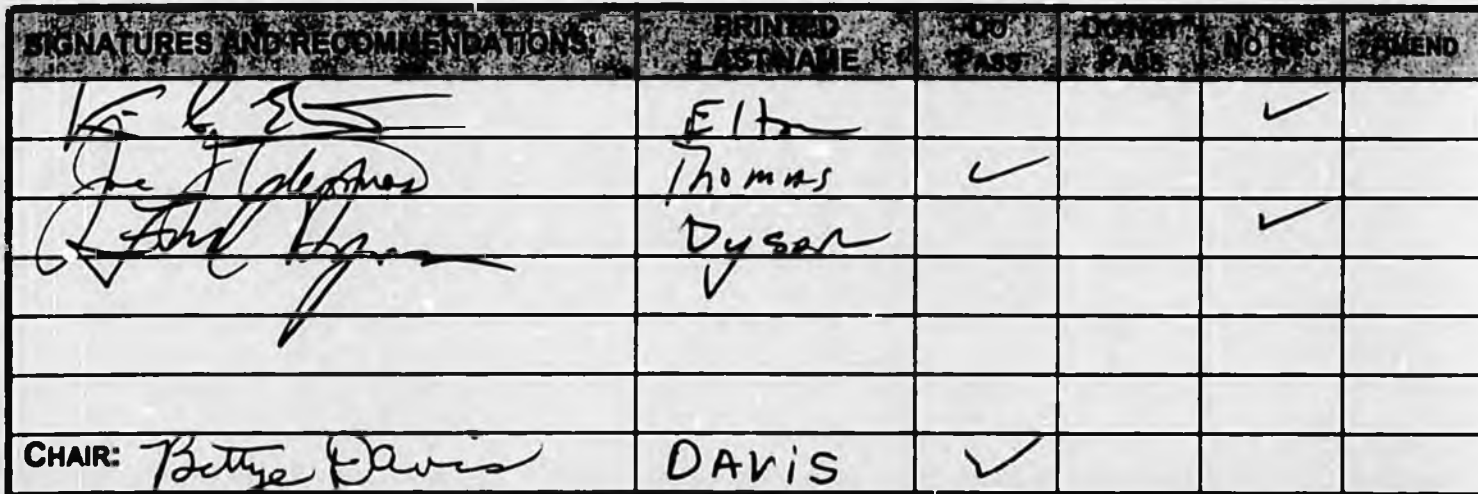 SIGNATURES AND RECOMMENDATIONS: PRINTED LASTNAME DO PASS DO NOT PASS NO REC AMEND
Elton ✓
Thomas ✓
Dyson ✓
CHAIR: Bettye Davis DAVIS ✓